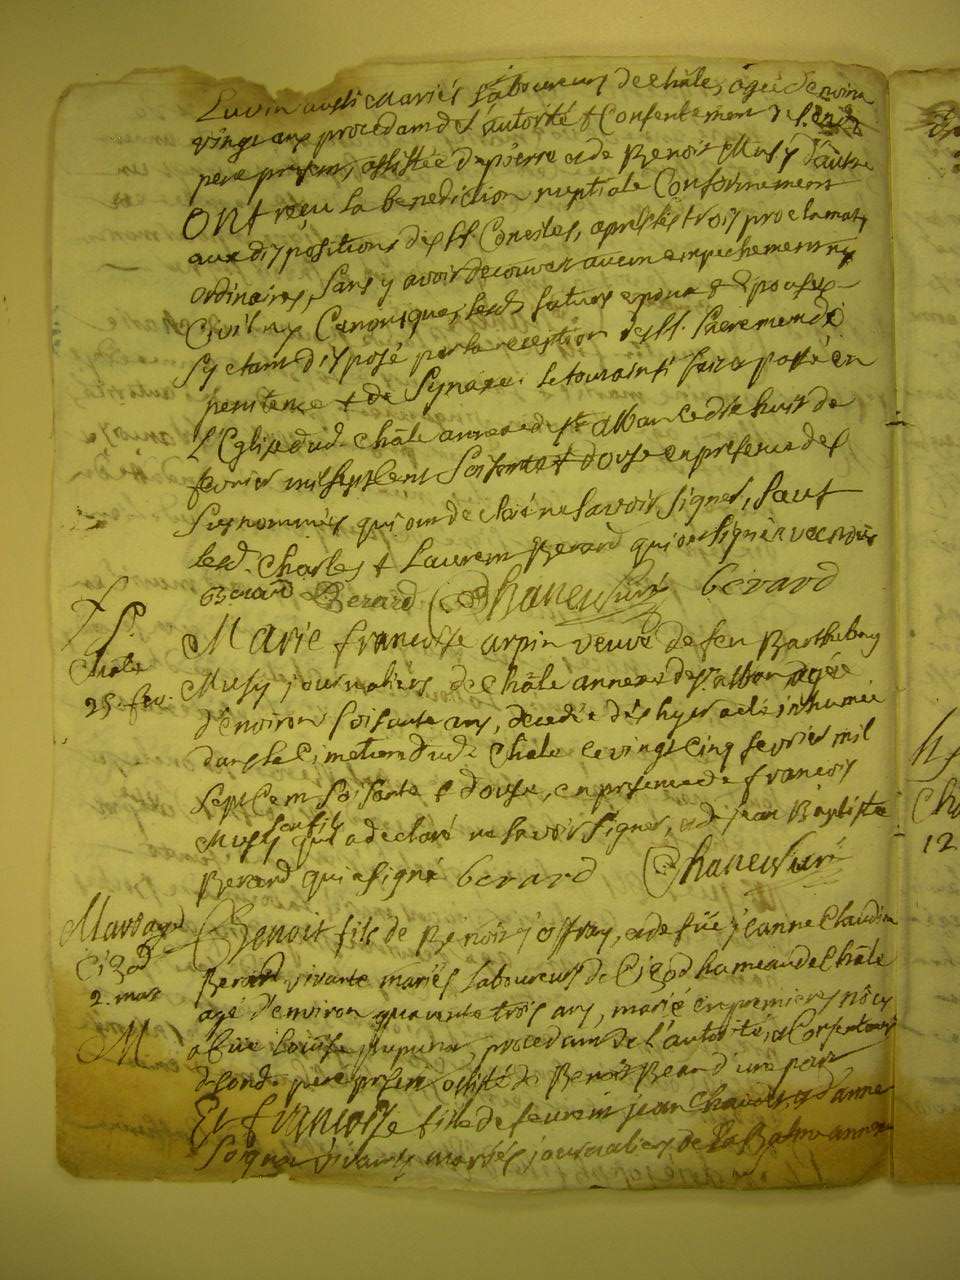 aussi mariés laboureurs de Châle, agée denviron
vingt ans procedant de l'autorité & Consentement
pere present, assistée de pierre et de Benoit Musy d'autre
ONt reçu la benediction nuptiale Conformement
aux dispositions des SS. Conciles, après les trois proclamat.
ordinaires, sans y avoir decouvert aucun empechement ny
Civil ny Canonique, lesd. futurs epoux & Epouse
sy etant disposé par la reception des SS. Sacremens de
penitence & de Synaxe. le tout ainsi fait & passé en
l'Eglise dud. Châle annexe de St. alban ce dix huit de
fevrier mil sept cent soisante & douse en presence des
susnommés qui ont declaré ne savoir signer, sauf
lesd. Charles & Laurent Berard qui ont signé avec nous
Berard Berard Curé berard
Sp.
Châle
25. fev.
Marie françoise arpin veuve de feu Barthelemy
Musy journaliers de Châle annexe de St. alban agée
d'environ soisante ans, decedée dès hyer a été inhumée
dans le Cimetiere dud. Châle ce vingt cinq fevrier mil
sept Cent soisante & douse, en presence de françois
son fils
Musy qui a declaré ne savoir signer, & de jean Baptiste
Berard qui a signé berard Curé
Mariage
Cizod
2. mar
M
Benoit fils de Benoit joffray, et de füe jeanne Claudine
Berard vivante mariés laboureurs de Cizod hameau de Châle
agé d'environ quarante trois ans, marié en premieres nôces
à füe Louise, procedant de l'autorité, et Consentement
dud. pere present, assisté de Benoit Berard d'une part
Et françoise fille de feu jean et d'anne
vivants mariés journaliers de La Balme annexe
12